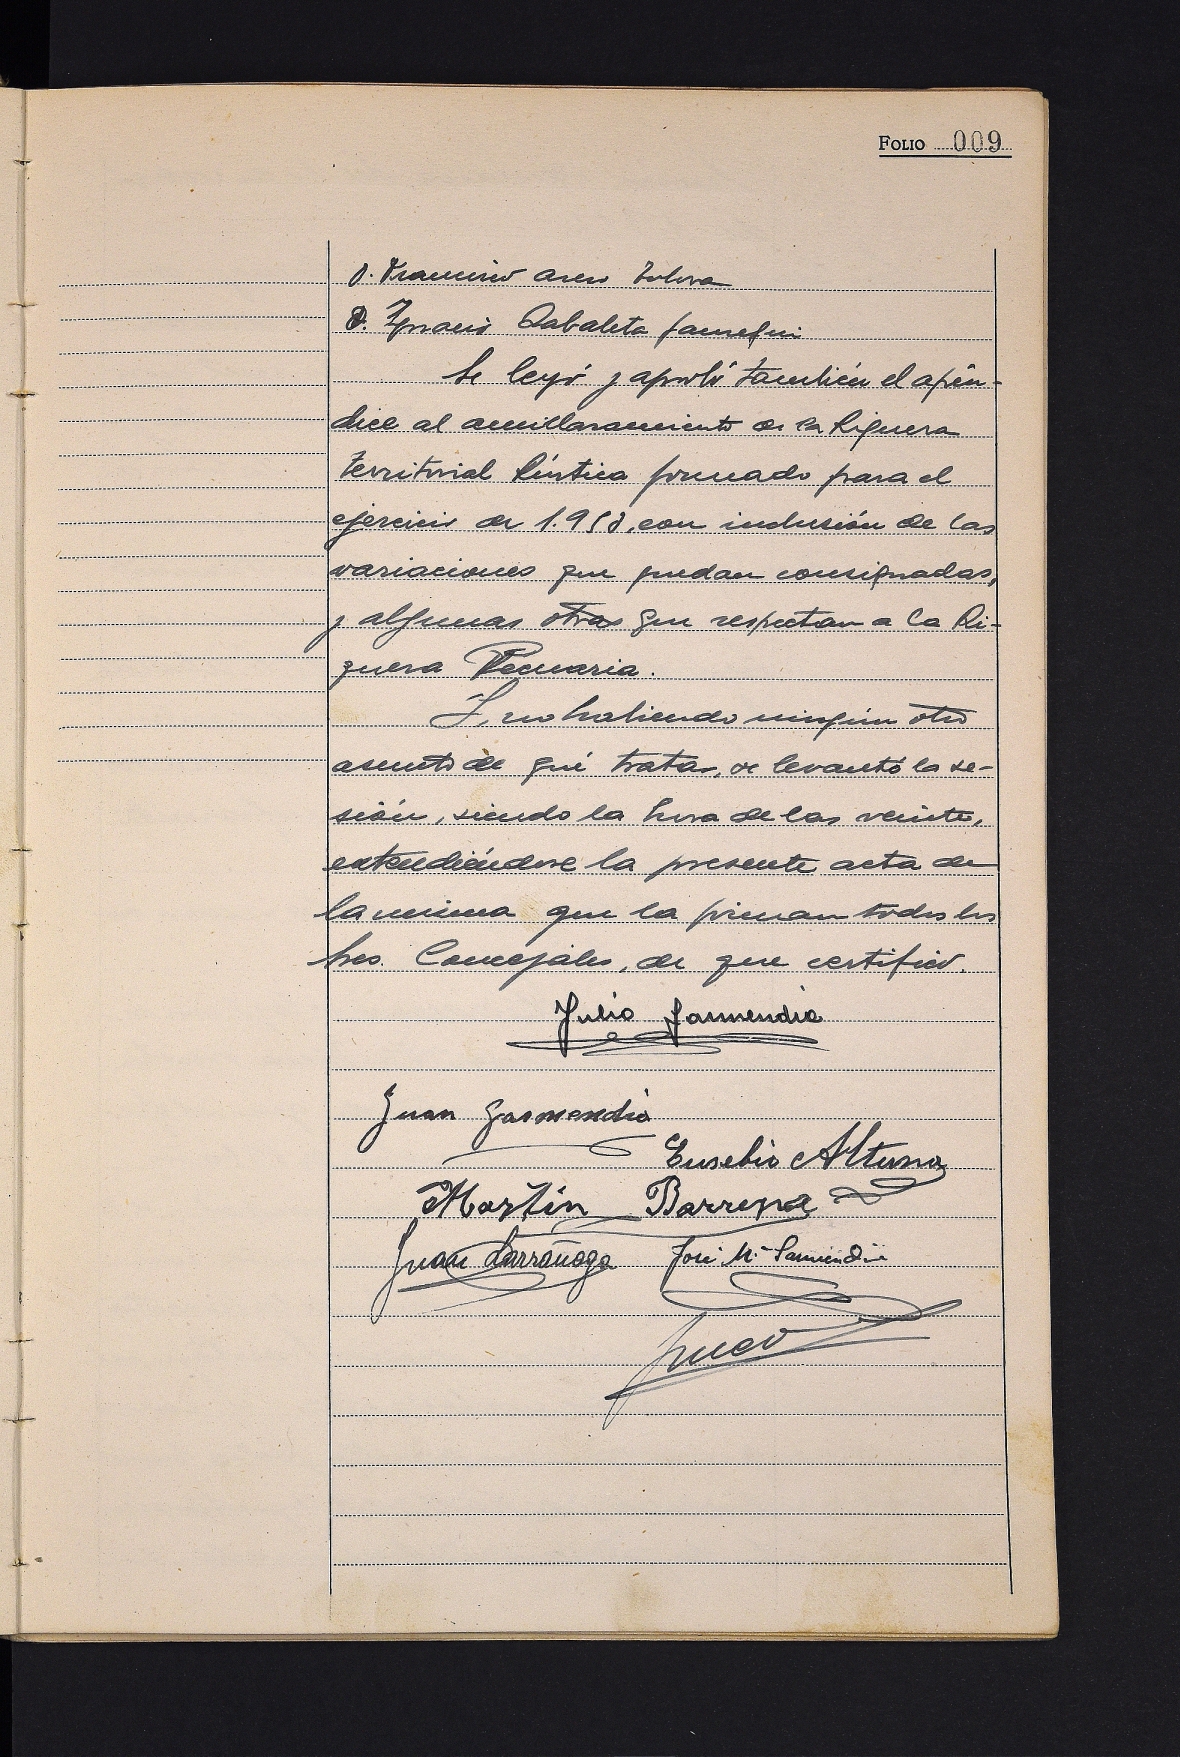 FOLIO 009
D. Francisco
D. Ignacio Zabaleta Jauregui
Se leyó y aprobó también el apén-
dice al amillaramiento de la Riqueza
Territorial Rústica formado para el
ejercicio de 1.953, con inclusión de las
variaciones que quedan consignadas,
y algunas otras que respectan a la Ri-
queza Pecuaria.
Y, no habiendo ningún otro
asunto de qué tratar, se levantó la se-
sión, siendo la hora de las veinte,
extendiéndose la presente acta de
la misma que la firman todos los
Sres. Concejales, de que certifico.
Julio Garmendia
Juan Garmendia
Eusebio Altuna
Martín Barrena
Juan Larrañaga José Mª Garmendia